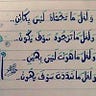 ولعل ما تخشاه ليس بكائن
ولعل ما ترجوه سوف يكون
ولعل ما هونت ليس بهين
ولعل ما شددت سوف يهون